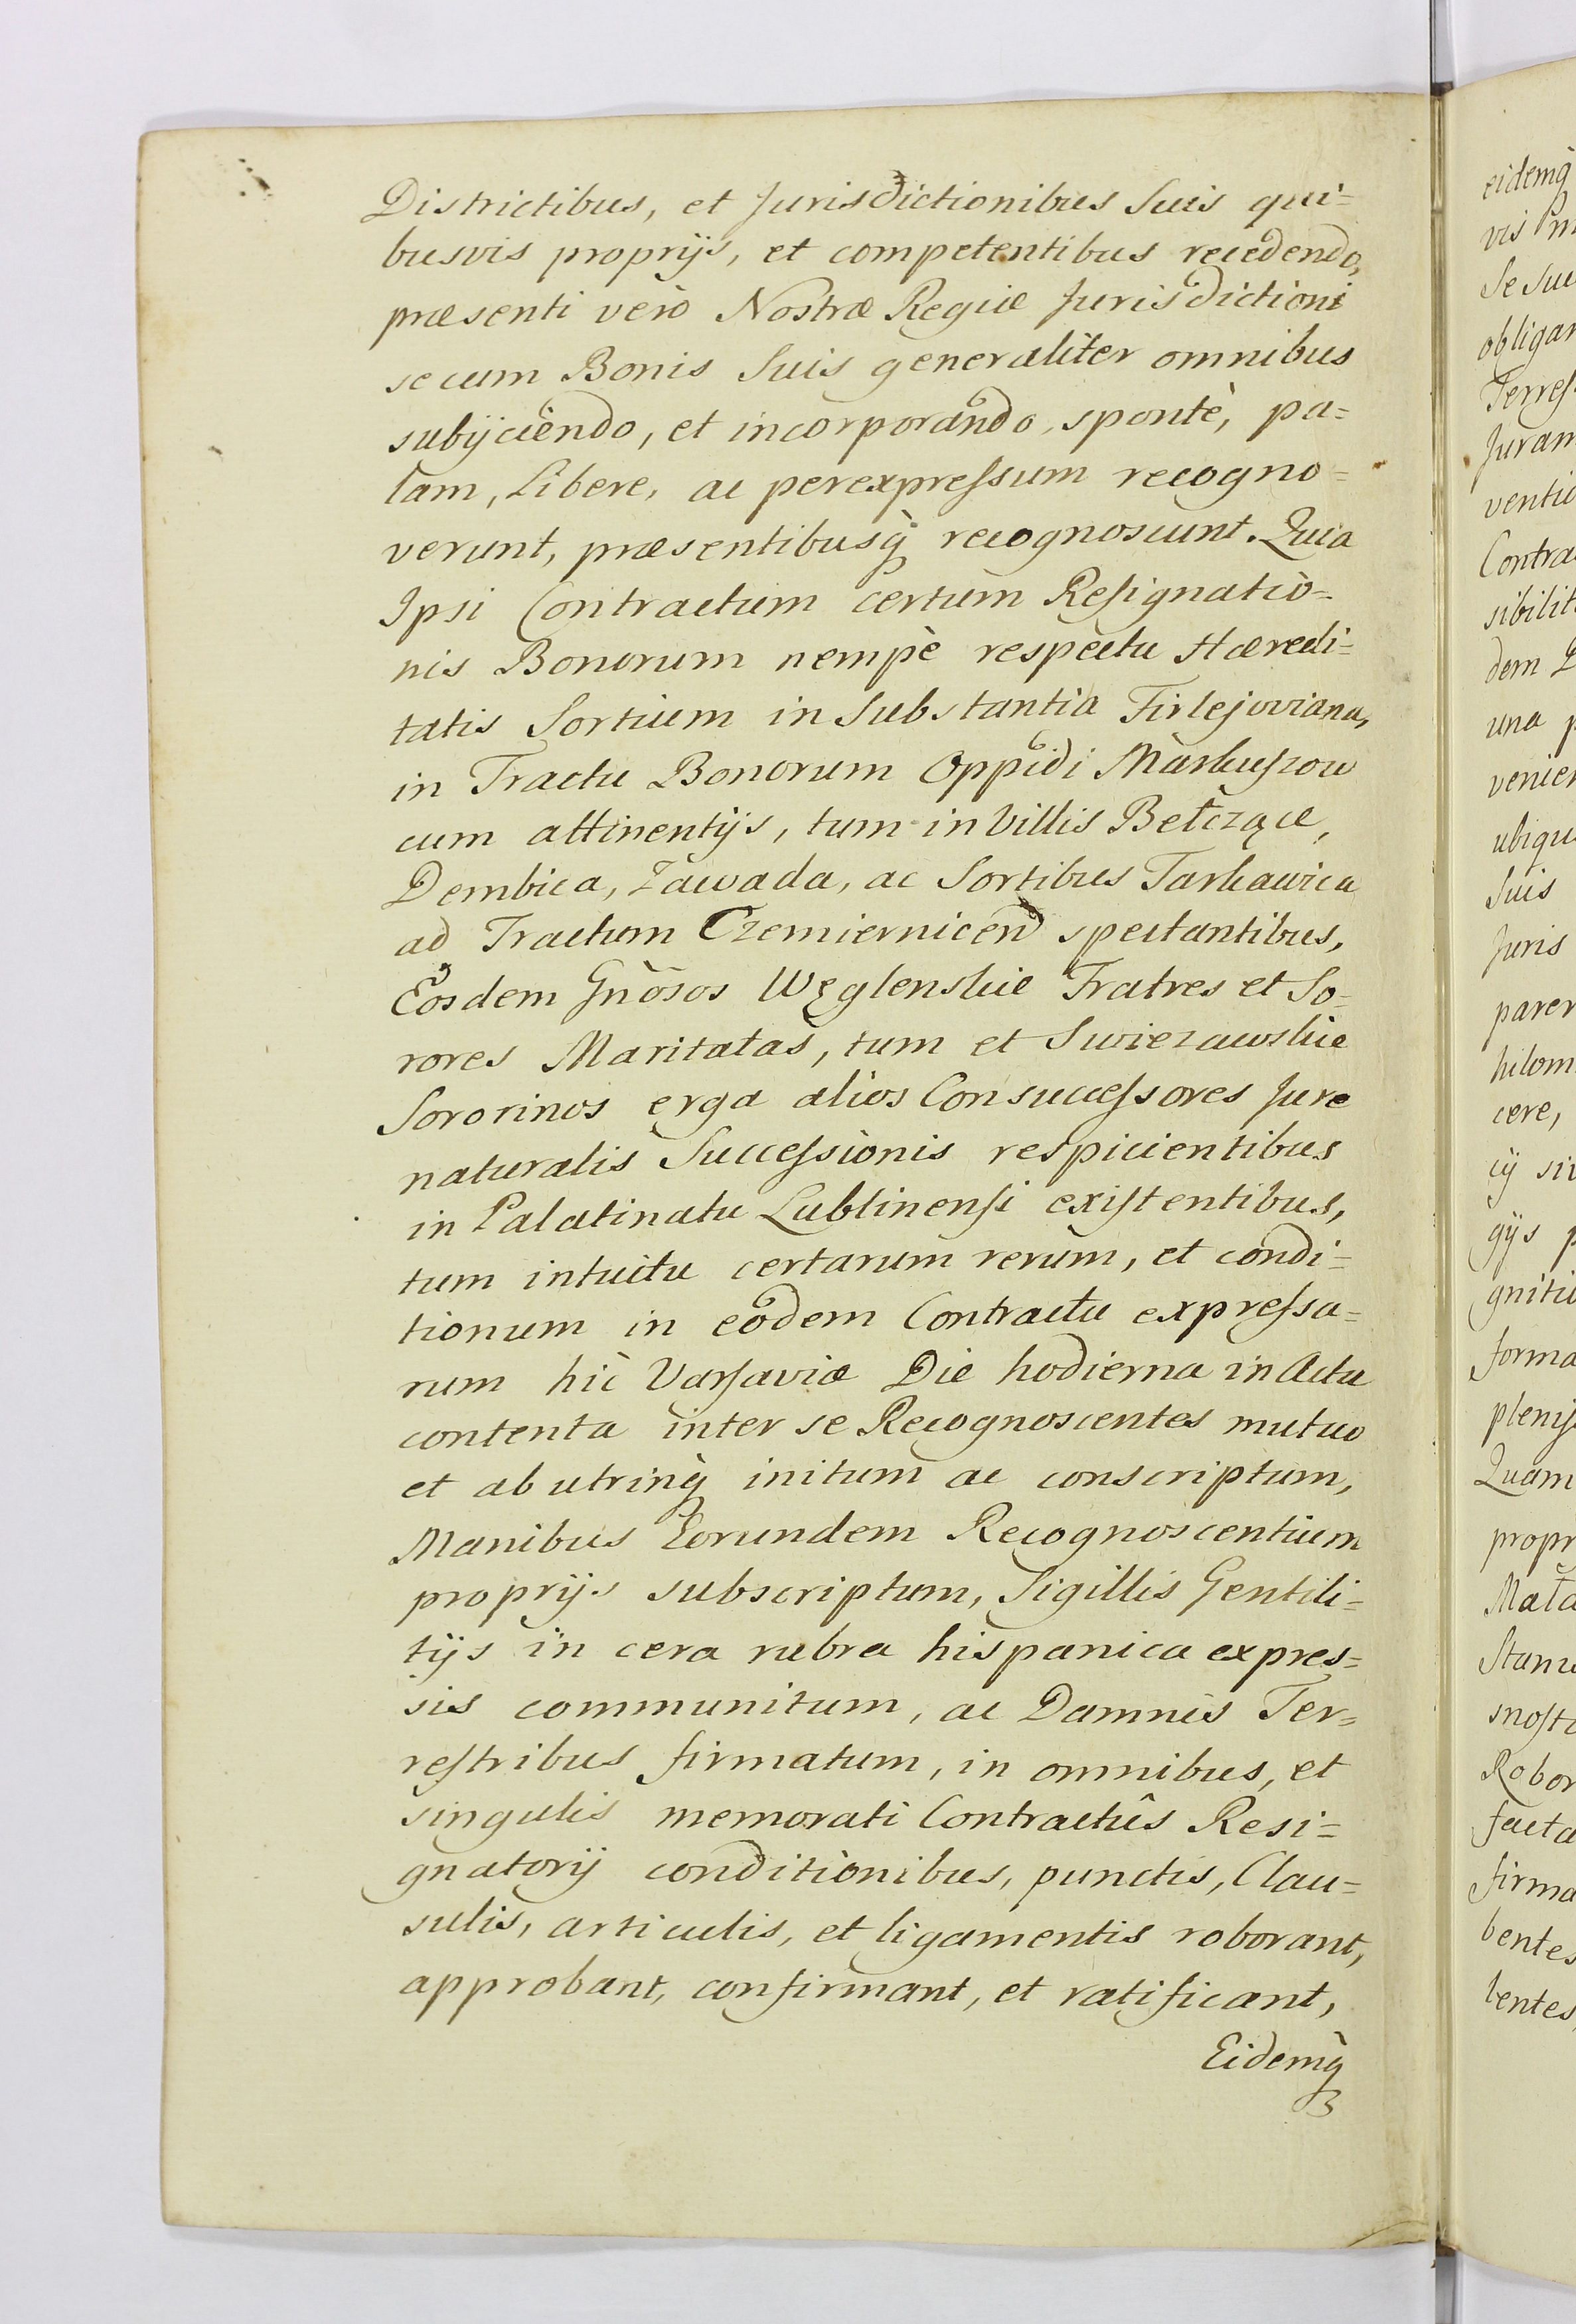 Districtibus, et Jurisdictionibus Suis qui=
busvis proprijs, et competentibus recedendo,
præsenti verò Nostræ Regiæ Jurisdictioni
se cum Bonis Suis generaliter omnibus
subijciendo, et incorporando, spontè, pa=
lam, Libere, ac perexpreſsum recogno=
verunt, præsentibusq̀ recognoscunt. Quia
Ipsi Contractum certum Reſignatio=
nis Bonorum nempè respectu Hæredi=
tatis Sortium in Substantia Firlejoviana,
in Tractu Bonorum Oppidi Markuſzow
cum attinentijs, tum in Villis Bełczące,
Dembica, Zawada, ac Sortibus Tarkawica
ad Tractum Czemiernicen̄ spectantibus,
Eosdem Gnōsos Węglenskie Fratres et So=
rores Maritatas, tum et Swiezawskie
Sororinos erga alios Consucceſsores Jure
naturalis Succeſsionis respicientibus
in Palatinatu Lublinenſi exiſtentibus,
tum intuitu certarum rerum, et condi=
tionum in eodem Contractu expreſsa=
rum hìc Varſaviæ Die hodierna in Actu
contenta inter se Recognoscentes mutuo
et ab utrinq̀ initum ac conscriptum,
Manibus Eorundem Recognoscentium
proprijs subscriptum, Sigillis Gentili=
tijs in cera rubra hispanica expres=
sis communitum, ac Damnis Ter=
reſtribus firmatum, in omnibus, et
singulis memorati Contractûs Resi=
gnatorij conditionibus, punctis, Clau=
sulis, articulis, et ligamentis roborant,
approbant, confirmant, et ratificant,
Eidemq̀
eidemq̀
vis
Se Sue
obligan
Terreſ
Juram
ventio
Contra
sibilit
dem
una p
venien
ubiqu
Suis
Juris
parer
hilom
cere,
cij siv
gijs p
gnitio
forma
pleniſ
Quam
propr
Mała
Stani
snoſt
Robor
facta
firma
bentes
lentes,